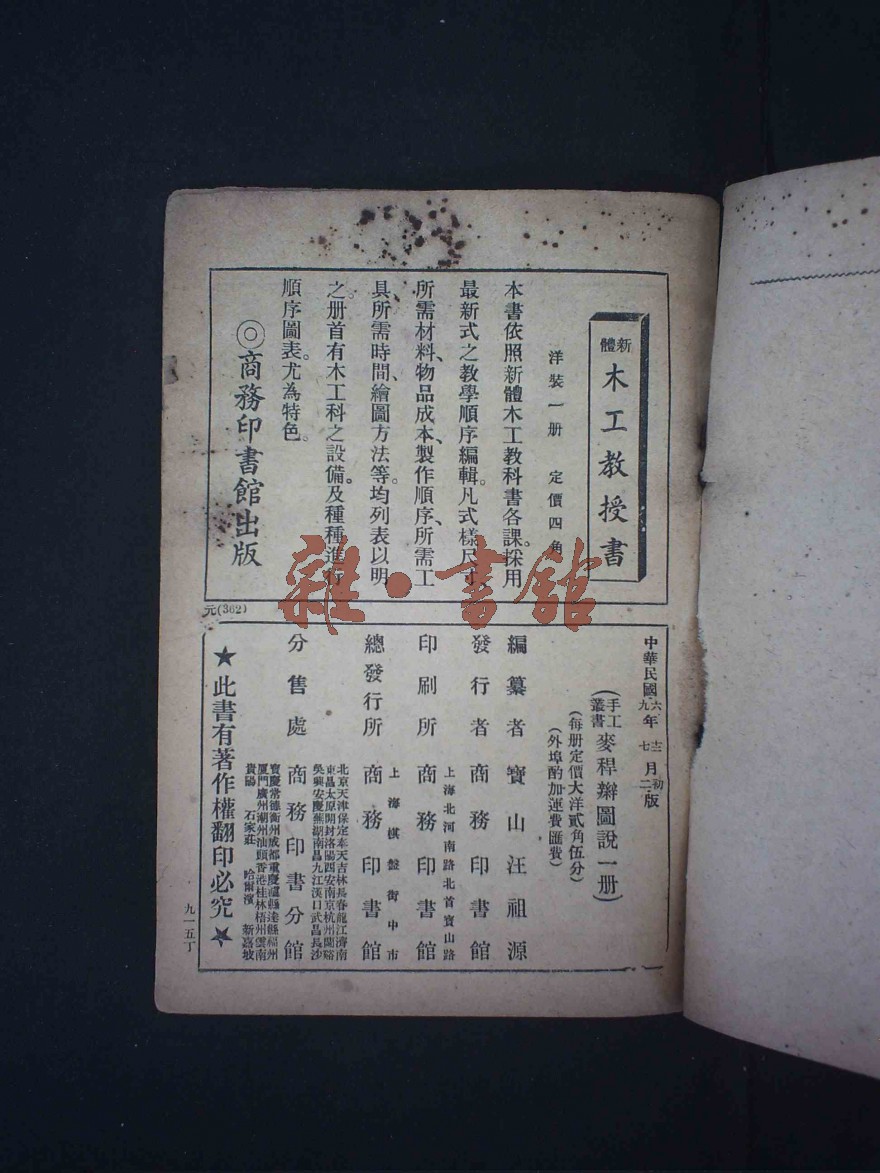 新體
木工教授書
洋裝一册 定價四角
本書依照新體木工教科書各課。採用
最新式之教學順序編輯。凡式樣尺寸、
所需材料、物品成本、製作順序、所需工
具所需時間、繪圖方法等。均列表以明
之。册首有木工科之設備。及種種進行
順序圖表。尤為特色。
◎商務印書館出版
元(362)
雜·書館
中華民國六年十二月初版
九年七月二版
(手工叢書麥稈辮圖說一册)
(每册定價大洋貳角伍分)
(外埠酌加運費匯費)
編纂者 寶山汪祖源
發行者 商務印書館
上海北河南路北首寶山路
印刷所 商務印書館
上海棋盤街中市
總發行所 商務印書館
分售處 商務印書分館
北京天津保定奉天吉林長春龍江濟南
東昌太原開封洛陽西安南京杭州蘭谿
吳興安慶蕪湖南昌九江漢口武昌長沙
寶慶常德衡州成都重慶瀘縣達縣福州
厦門廣州潮州汕頭香港桂林梧州雲南
貴陽 石家莊 哈爾濱 新嘉坡
★此書有著作權翻印必究★
九一五丁